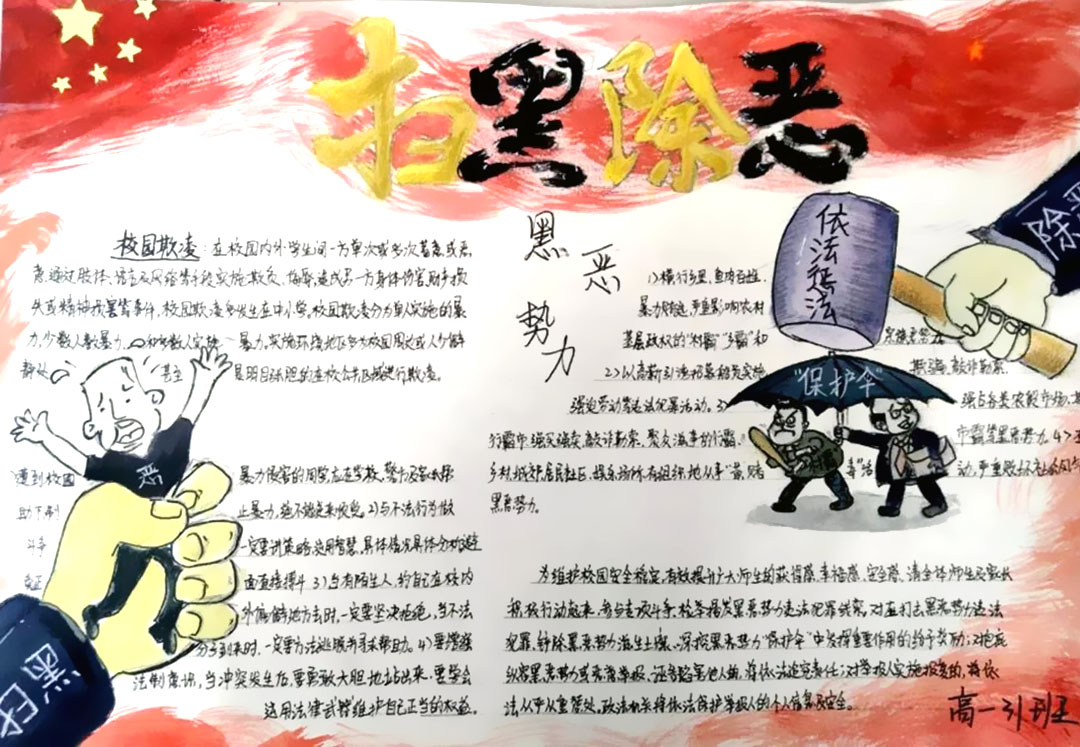 扫黑除恶
校园欺凌:在校园内外学生间一方单次或多次蓄意或恶
意通过肢体、语言及网络等手段实施欺负、侮辱,造成另一方身体伤害、财产损
失或精神损害等事件,校园欺凌多发生在中小学,校园欺凌分为单人实施的暴
力,少数人数暴力,实施环境地区多为校园周边或人少僻
静处 甚至 是明目张胆的在校公共区域进行欺凌。
恶
遭到校园 暴力侵害的同学,应在学校、警方及家
止暴力,绝不能 2)与不法行为做
斗争 一定要讲策略,运用智慧,具体情况具体分析,避
面直接 3)当有陌生人,约自己在校内
外偏僻地方去时,一定要坚决拒绝,当不法
分子到来时,一定要方法逃脱与寻求帮助。4)要增强
法制意识,当冲突发生后,要勇敢大胆地站出来,要学会
运用法律武器维护自己正当的权益。
黑
黑恶势力
1)横行乡里,鱼肉百姓,
暴力 严重影响农村
基层政权的“村霸”“乡霸”和
2)以高薪引诱招募 实施 欺骗,敲诈勒索,
强迫劳动等违法犯罪活动。3) 强占各类农贸市场,
行霸市、强买强卖、敲诈勒索、聚众滋事的行霸、 市霸等黑恶势力。4)在
乡村、城郊、居民社区、娱乐场所有组织地从事“黄”赌 毒”活 动,严重
黑恶势力。
依法惩法
除恶
“保护伞”
为维护校园安全稳定,有效提升广大师生的获得感、幸福感、安全感,请全体师生及家长
积极行动起来,参与专项斗争,检举揭发黑恶势力违法犯罪线索,对在打击黑恶势力违法
犯罪、铲除黑恶势力滋生土壤、深挖黑恶势力“保护伞”中发挥重要作用的给予奖励;对包庇
纵容黑恶势力或恶意举报、诬告陷害他人的,将依法追究责任;对举报人实施报复的,将依
法从严从重惩处。政法机关将依法保护举报人的个人信息及安全。
高一31班